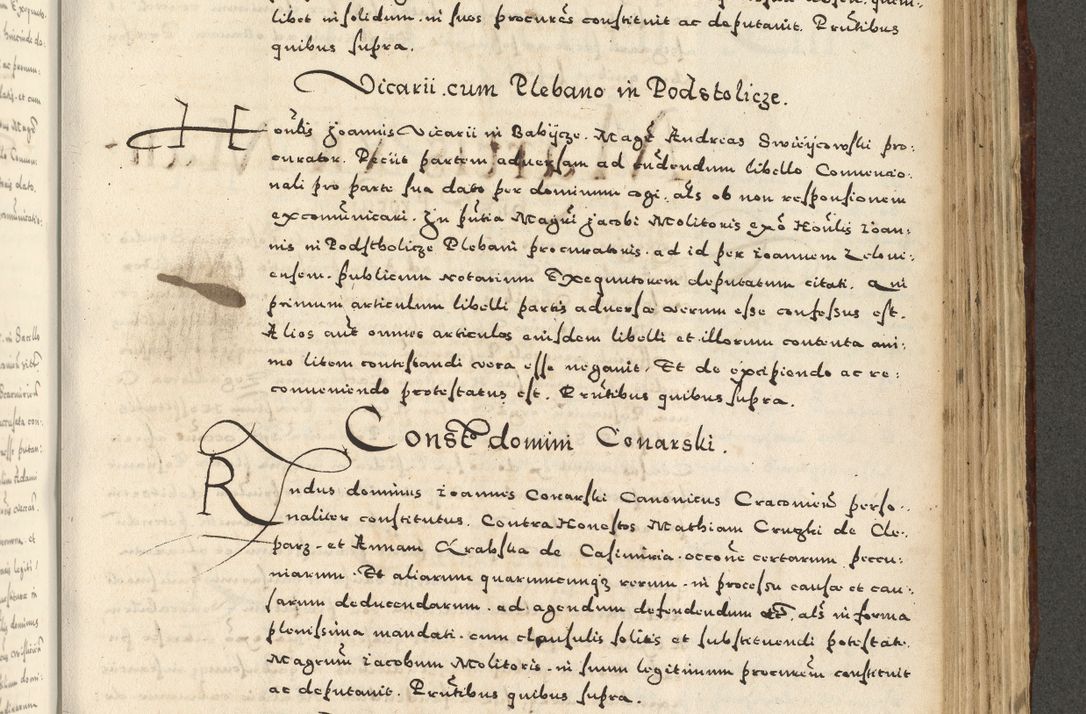 libet in solidum in suos procurēs constituit ac deputauit. Prn̄tibus
quibus supra.
Vicarii cum Plebano in Podstolicze.
Honl̄is Joannis Vicarii in Babÿcze. Magr̄ Andreas Swiēÿcowski pro:
curator. Peciit partem aduersam ad cudendum libello Conuencio:
nali pro parte sua dato per dominum cogi. al̄s ob non responsionem
excomunicari. In pn̄tia Magrī Jacobi Molitoris ex̄o Honl̄is Ioan:
nis in Podstholicze Plebani procuratoris. ad id per Ioannem Zeloui:
ensem. publicum Notarium Exequutorem deputatum citati. Qui
primum articulum libelli partis aduersæ verum esse confessus est.
Alios aūt omnes articulos eiusdem libelli et illorum contenta ani:
mo litem contestandi vera esse negauit. Et de excipiendo ac re:
conueniendo protestatus est. Prn̄tibus quibus supra.
Constō domini Conarski.
Rndus dominus Ioannes Conarski Canonicus Cracovien̄ perso:
naliter constitutus. Contra Honestos Mathiam Cruzki de Cle:
parz. et Annam Krabska de Casimiria. occon̄e certarum peccu:
niarum. Et aliarum quarumcunqꝫ rerum. in processu causæ et cau:
sarum deducendarum. ad agendum defendendum al̄s in forma
plenissima mandati. cum clausulis solitis et substituendi potestate.
Magrum̄ Iacobum Molitoris. in suum legitimum procurēm constituit
ac deputauit. Prn̄tibus quibus supra.